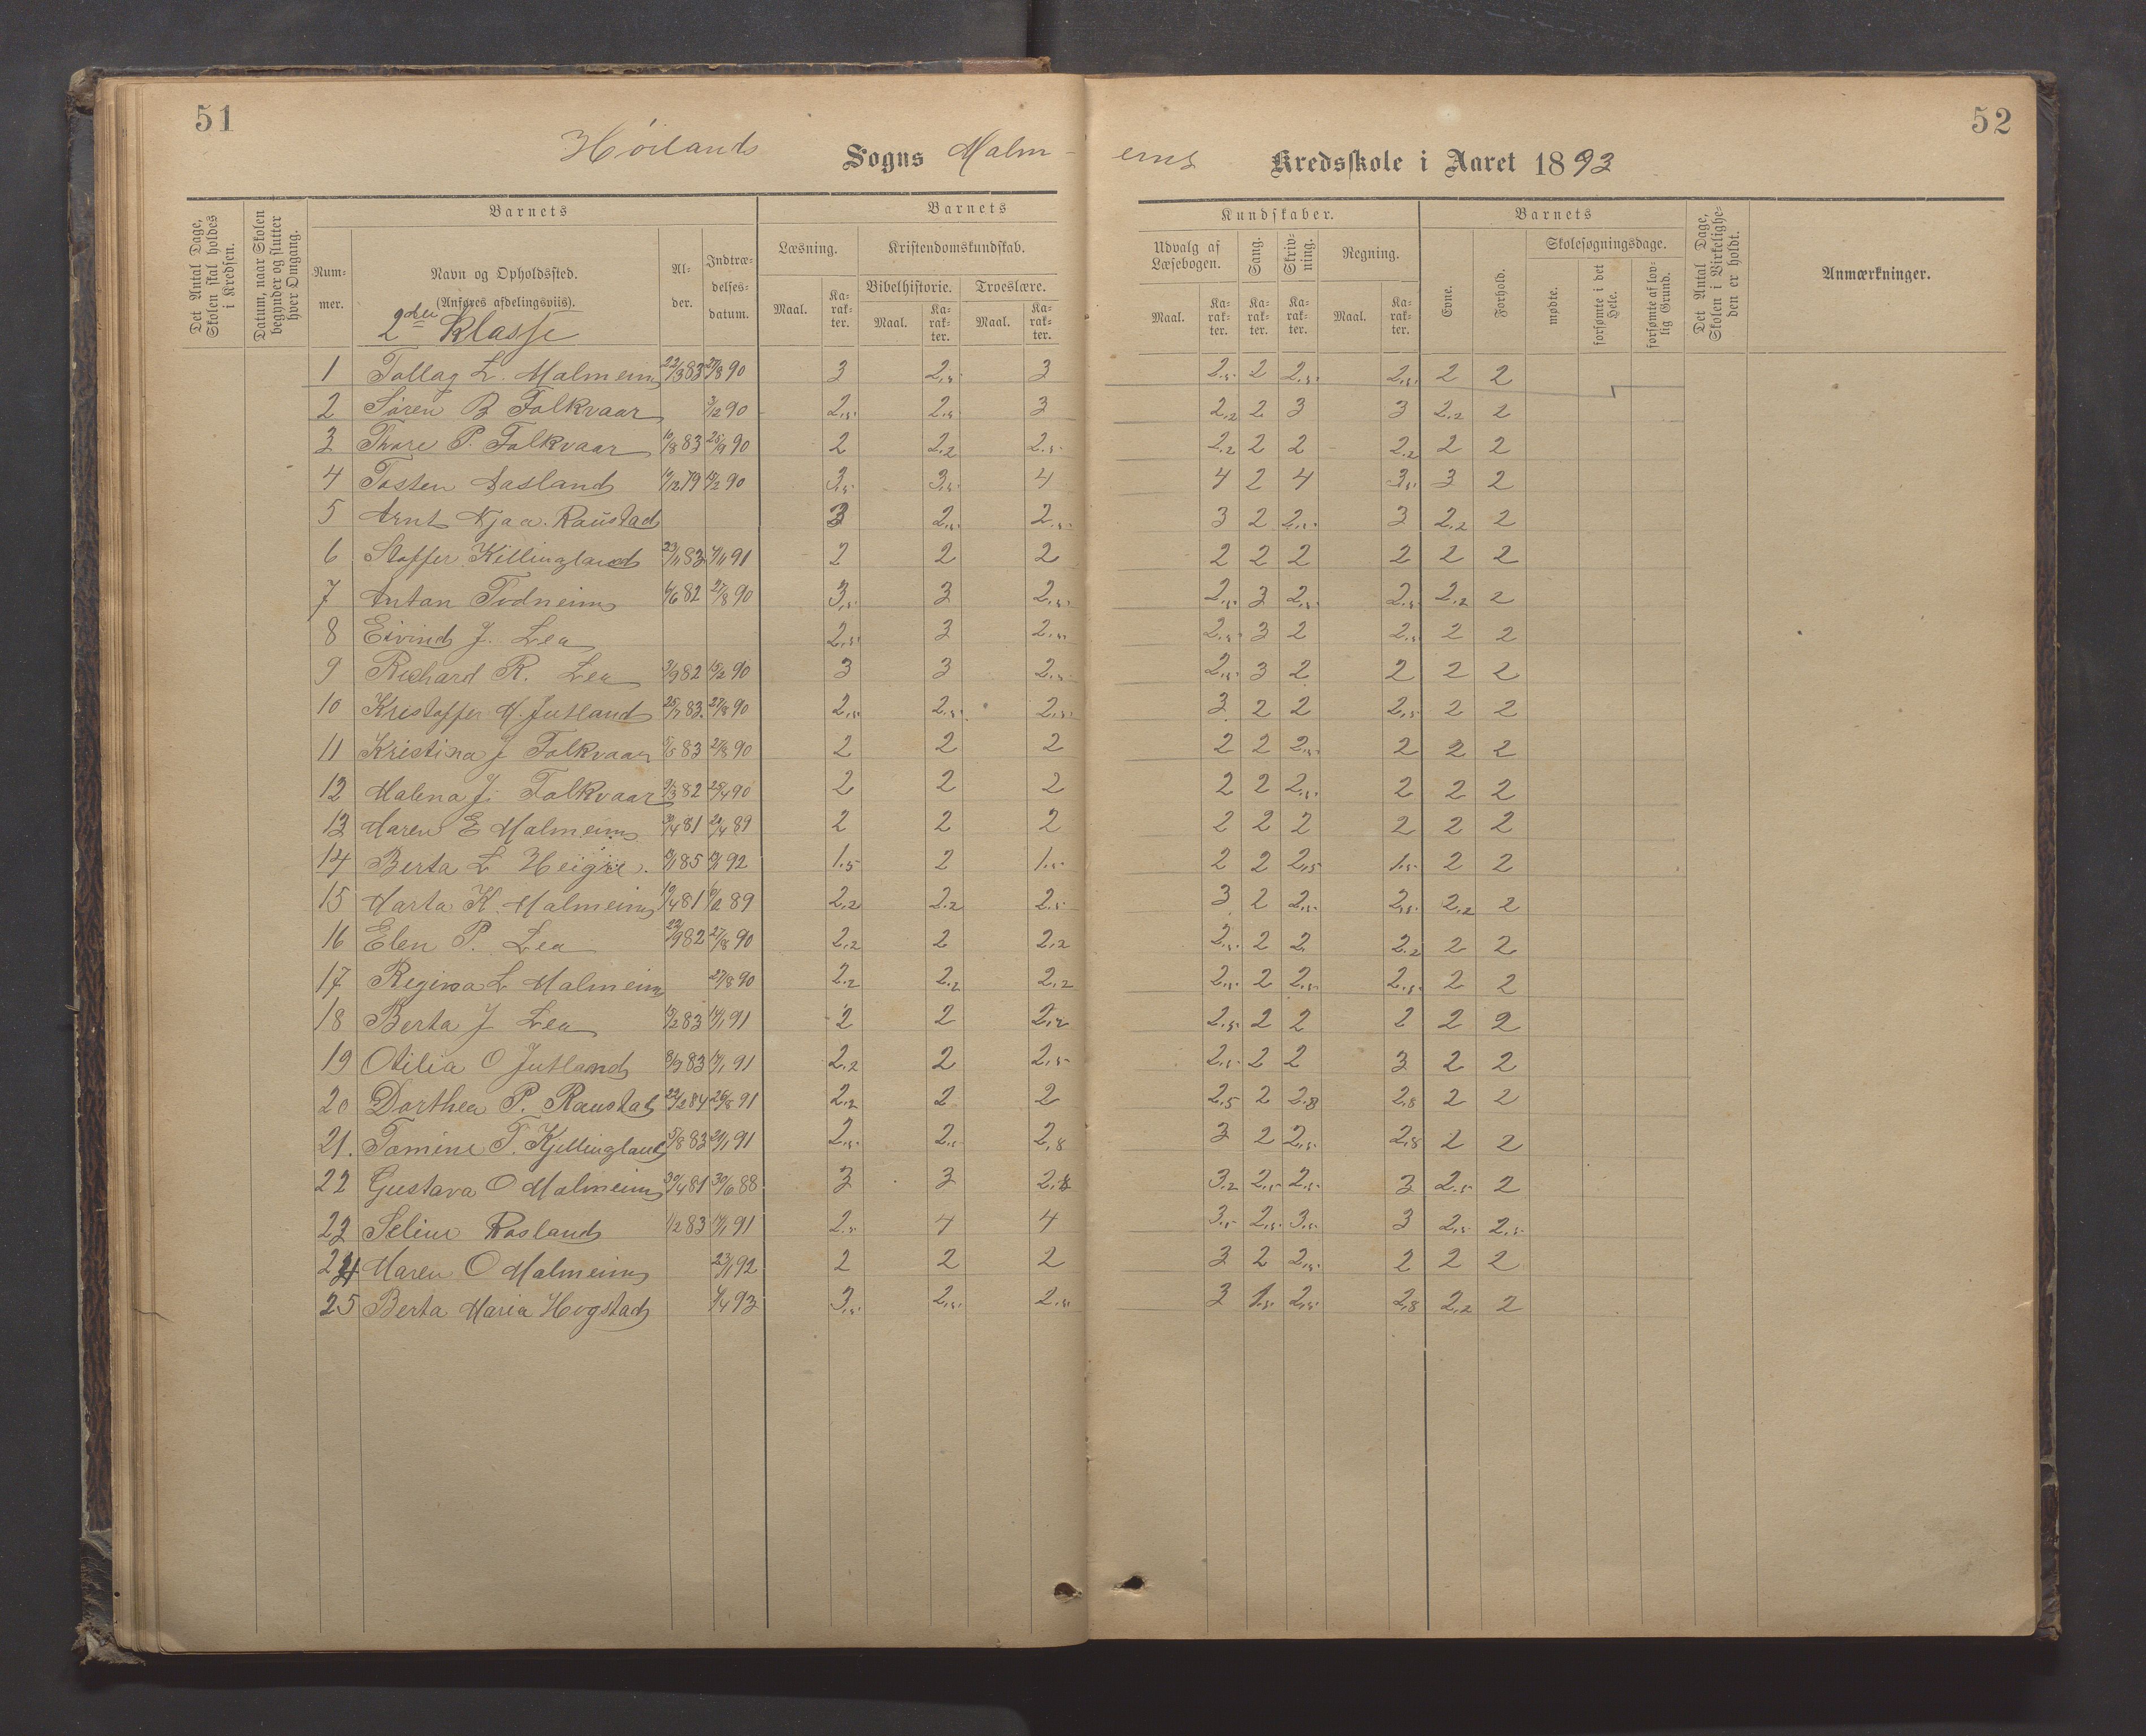 51
52
Høilands Sogns Malm-
eims Kredsskole i Aaret 1893
Det Antal Dage, Skolen skal holdes i Kredsen.
Datum, naar Skolen begynder og slutter hver Omgang.
Barnets
Num-mer.
Navn og Opholdssted.
(Anføres afdelingsviis).
2den Klasse
Al-der.
Indtræ-delses-datum.
Barnets
Læsning.
Maal. Ka-rak-ter.
Kristendomskundskab.
Bibelhistorie.
Maal. Ka-rak-ter.
Troeslære.
Maal. Ka-rak-ter.
Kundskaber.
Udvalg af Læsebogen.
Maal. Ka-rak-ter.
Sang.
Ka-rak-ter.
Skriv-ning.
Ka-rak-ter.
Regning.
Maal. Ka-rak-ter.
Barnets
Evne.
Forhold.
Skolesøgningsdage.
mødte.
forsømte i det Hele.
forsømte af lov-lig Grund.
Det Antal Dage, Skolen i Virkelighe-den er holdt.
Anmærkninger.
1 Tollag L. Malmeim 22/3 83 27/8 90 3 2,5 3 2,5 2 2,5 2,5 2 2
2 Søren B Folkvaar 3/2 90 2,5 2,5 3 2,2 2 3 3 2,2 2
3 Thore P. Folkvaar 10/8 83 25/9 90 2 2,2 2,5 2,2 2 2 2,2 2 2
4 Tosten Aasland 79 90 3,5 3,5 4 4 2 4 3,5 3 2
5 Arnt Njaa. Raustad 3 2,5 2,5 3 2 2,5 3 2,2 2
6 Stoffer Killingland 23/11 83 4/11 91 2 2 2 2 2 2 2 2 2
7 Antan Todneim 6/6 82 27/8 90 3,5 3 2,5 2,5 3 2,5 2,5 2,2 2
8 Eivind J. Lea 2,5 3 2,5 2,5 3 2 2,5 2 2
9 Richard R. Lea 82 90 3 3 2,5 2,5 3 2 2 2 2
10 Kristoffer M. Jutland 25/7 83 27/8 90 2,5 2,5 2,5 3 2 2 2,5 2 2
11 Kristina J Folkvaar 83 27/8 90 2 2 2 2 2 2,5 2 2 2
12 Malena J. Folkvaar 82 25/4 90 2 2 2 2 2 2,5 2 2 2
13 Maren E Malmeim 81 89 2 2 2 2 2 2 2 2 2
14 Berta L Heigre. 85 92 1.5 2 1.5 2 2 2,5 1.5 2 2
15 Marta K. Malmeim 81 89 2,2 2,2 2,5 3 2 2,5 2,5 2,2 2
16 Elen P. Lea 22/9 82 27/8 90 2,2 2 2,2 2,5 2 2 2,2 2 2
17 Regina L Malmeim 27/8 90 2,2 2,2 2,2 2,5 2 2,5 2,5 2 2
18 Berta J Lea 83 91 2 2 2,2 2,5 2 2 2 2 2
19 Otilia O Jutland 83 91 2,2 2 2,5 2,5 2 2 3 2 2
20 Dorthea P. Raustad 22/2 84 26/8 91 2,2 2 2 2,5 2 2,8 2,8 2 2
21. Tomine T. Kjellingland 5/8 83 91 2,5 2,5 2,8 3 2 2,5 2,8 2 2
22 Gustava O Malmeim 30/4 81 30/6 88 3 3 2,8 3,2 2,5 2,5 3 2,5 2
23 Seline Rosland 1/2 83 91 2,5 4 4 3,5 2,5 3,5 3 2,5 2,5
24 Maren O Malmeim 23/1 92 2 2 2 3 2 2,5 2 2 2
25 Berta Maria Hogstad 93 3,5 2,5 2,5 3 1,5 2,5 2,8 2,2 2